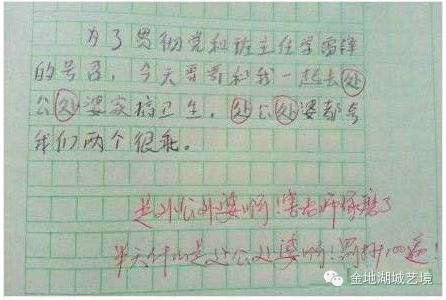 为了贯彻党和班主任学雷锋
的号召，今天哥哥和我一起去处
公处婆家搞卫生，处公处婆都夸
我们两个很乖。
是外公外婆啊!害老师琢磨了
半天什么是处公处婆啊!罚抄100遍!
金地湖城艺境